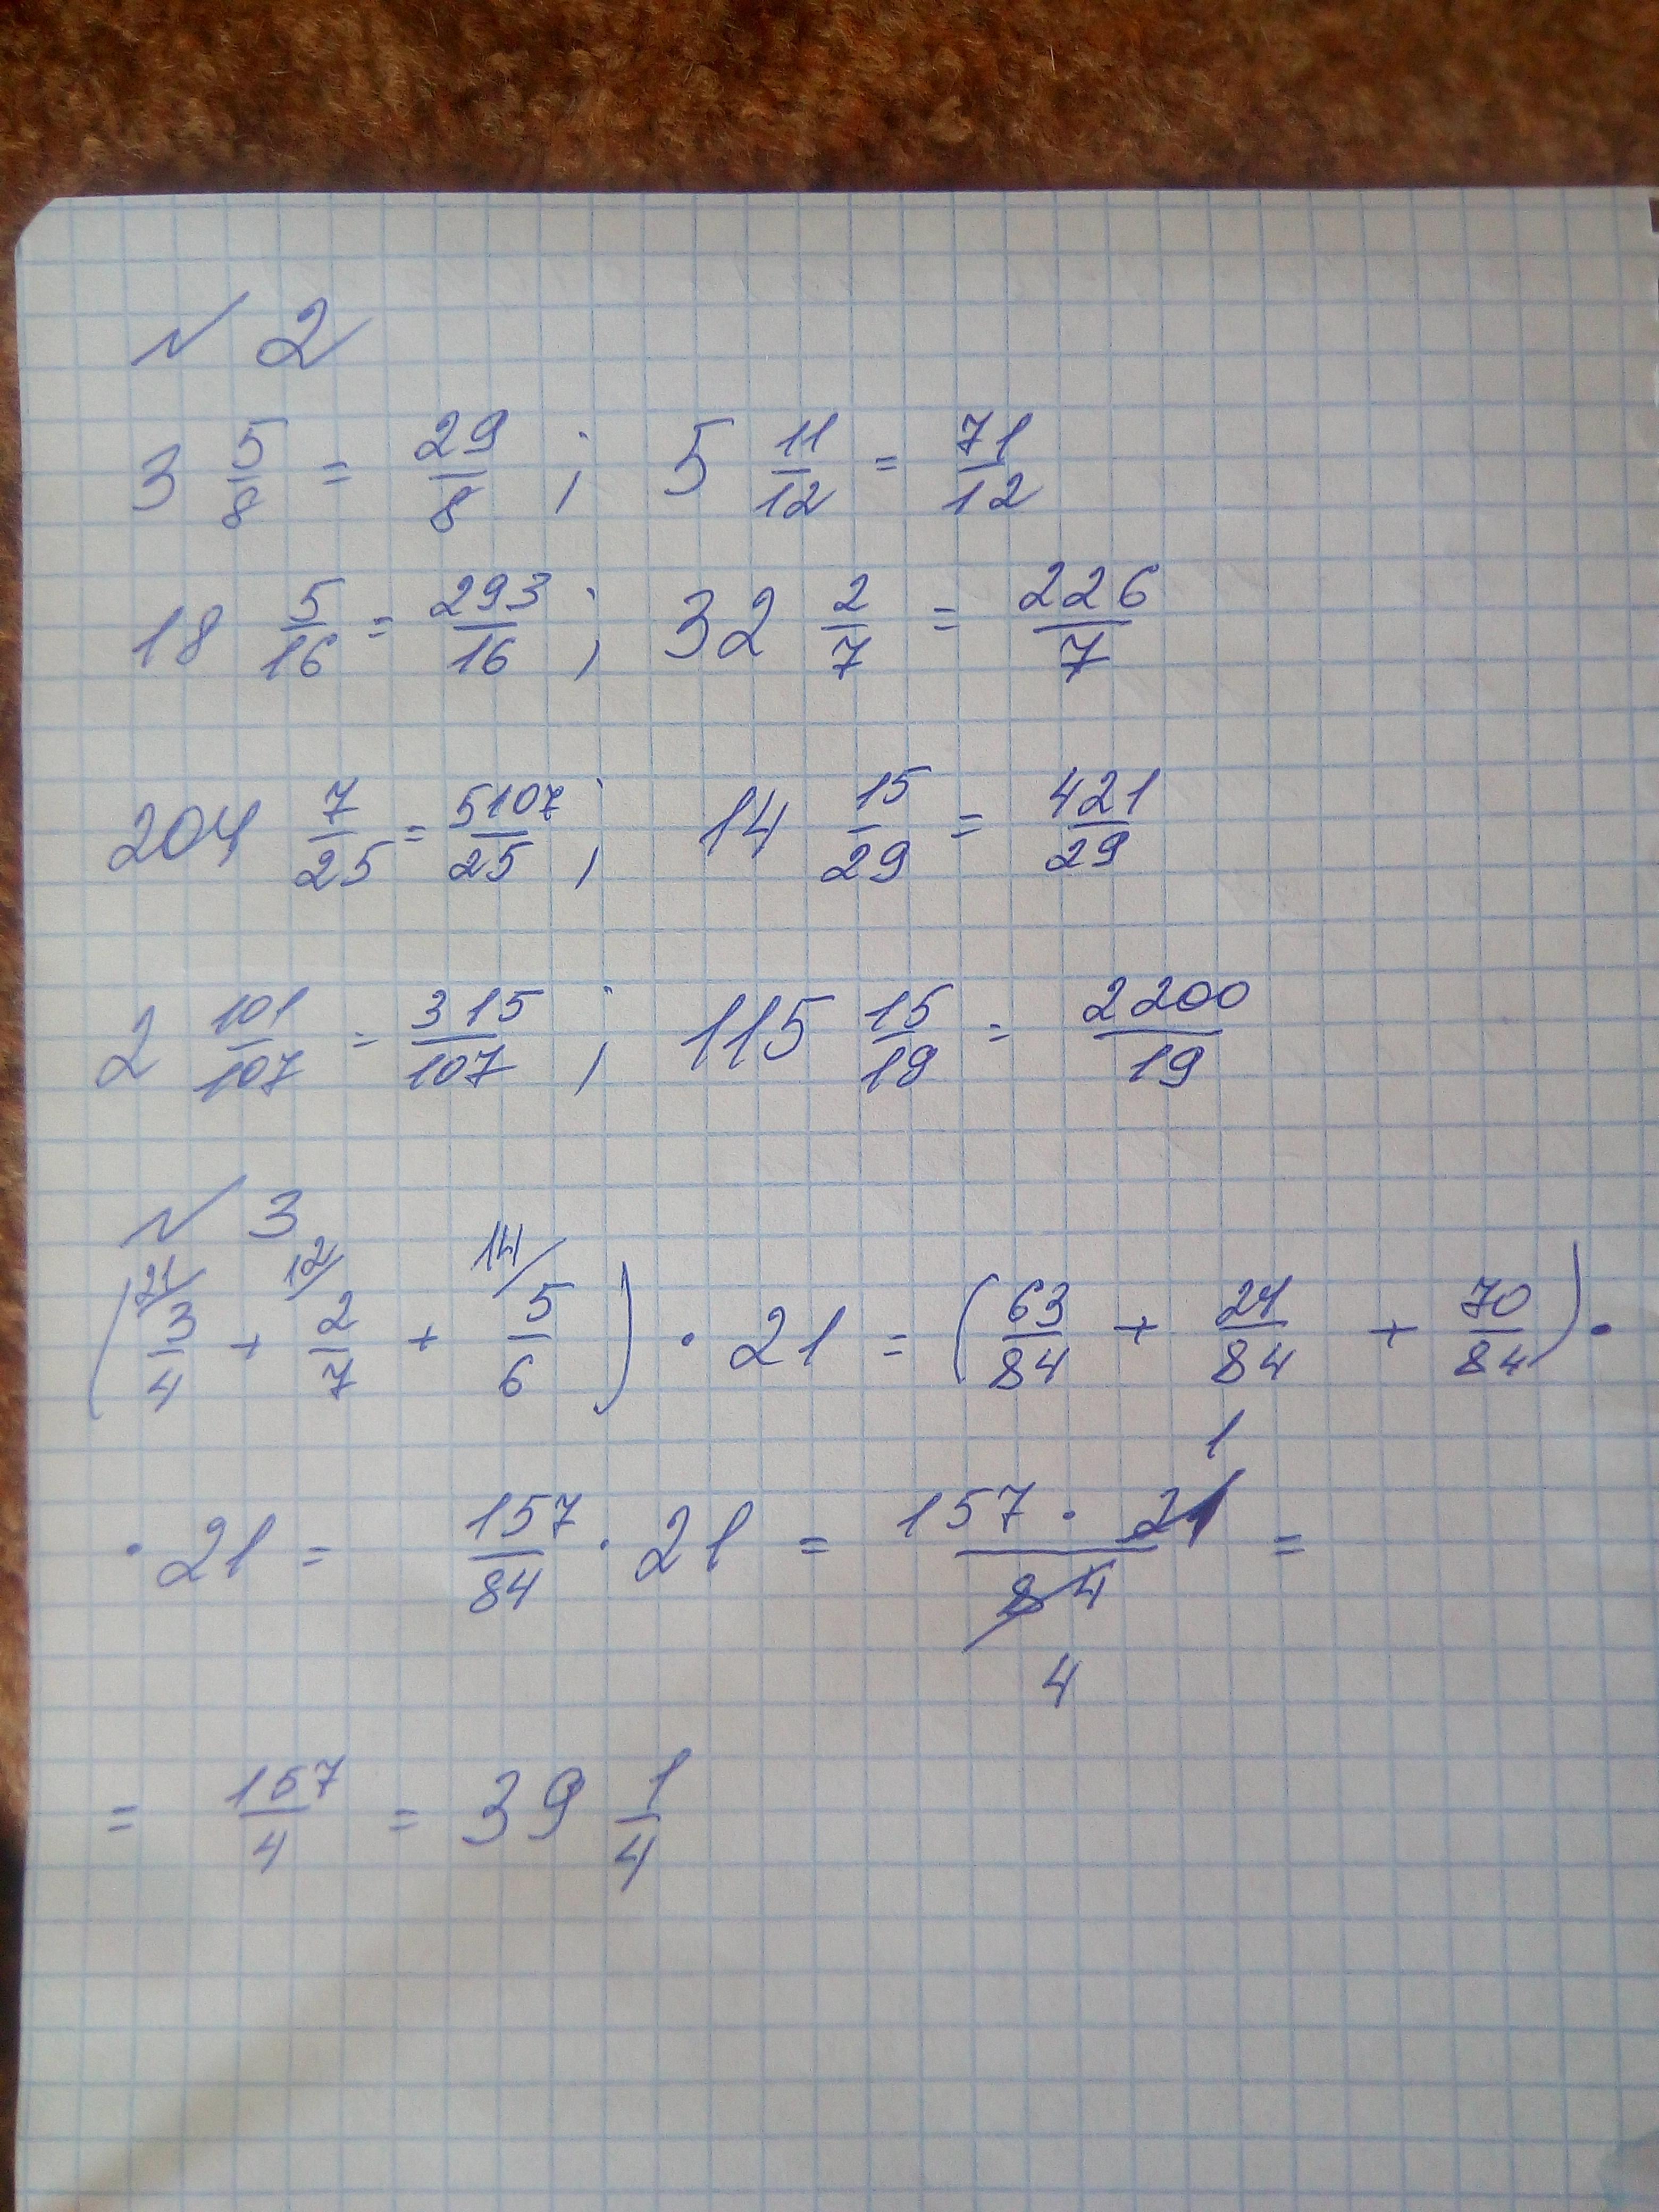 № 2
3 5/8 = 29/8 ; 5 11/12 = 71/12
18 5/16 = 293/16 ; 32 2/7 = 226/7
204 7/25 = 5107/25 ; 14 15/29 = 421/29
2 101/107 = 315/107 ; 115 15/19 = 2200/19
№ 3
(21/ 3/4 + 12/ 2/7 + 14/ 5/6) · 21 = (63/84 + 24/84 + 70/84) ·
· 21 = 157/84 · 21 = 157 · 21 1/84 4 =
= 157/4 = 39 1/4